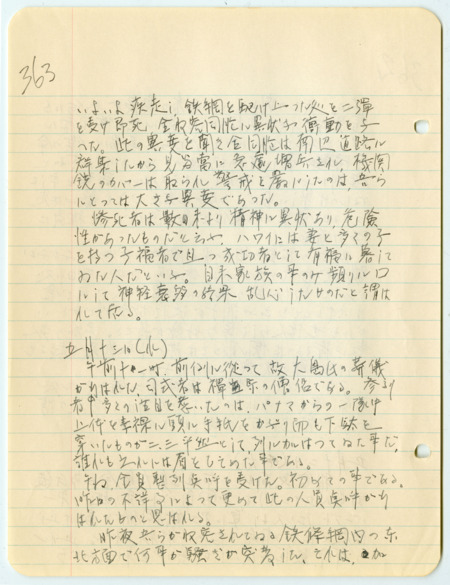 363
いよいよ疾走し、鉄綱を駆け上った処を二弾
を受け即死、全收容同胞に異状な衝動を与
った。此の異変を聞き全同胞は周辺道路に
群集したから見る間に 増兵され、機関
銃のカバーは取られ警戒を厳にしたのは、吾々
にとっては大きな異変であった。
惨死者は数日来より精神に異状あり、危険
性があったものだといふ、ハワイには妻と多くの子
を持つ子福者で且つ成功者として有福に暮して
おた人だといふ。日来家族の事のみ頻りに口
にして神経衰弱の結果 乱心したものだと謂は
れて居る。
五月十三日(水)
午前十一時、前例に従って故大島氏の葬儀
が行はれた、司式者は禅宗の僧侶である。参列
者中多くの注目を惹いたのは、パナマからの一隊中
上体を赤裸に頭に手紙をかぶり 下駄を
穿いたものが二、三平然として、列に加はってゐた事だ、
誰れも之れには眉をしかめた事である。
午后、全員整列点呼を受けた。初めての事である。
昨日の不祥事によって更めて此の人員点呼が行
はれたものと思はれる。
昨夜 吾らが收容されてゐる鉄條網西の東
北方面で何事か騒ぎが突発した、それは、加